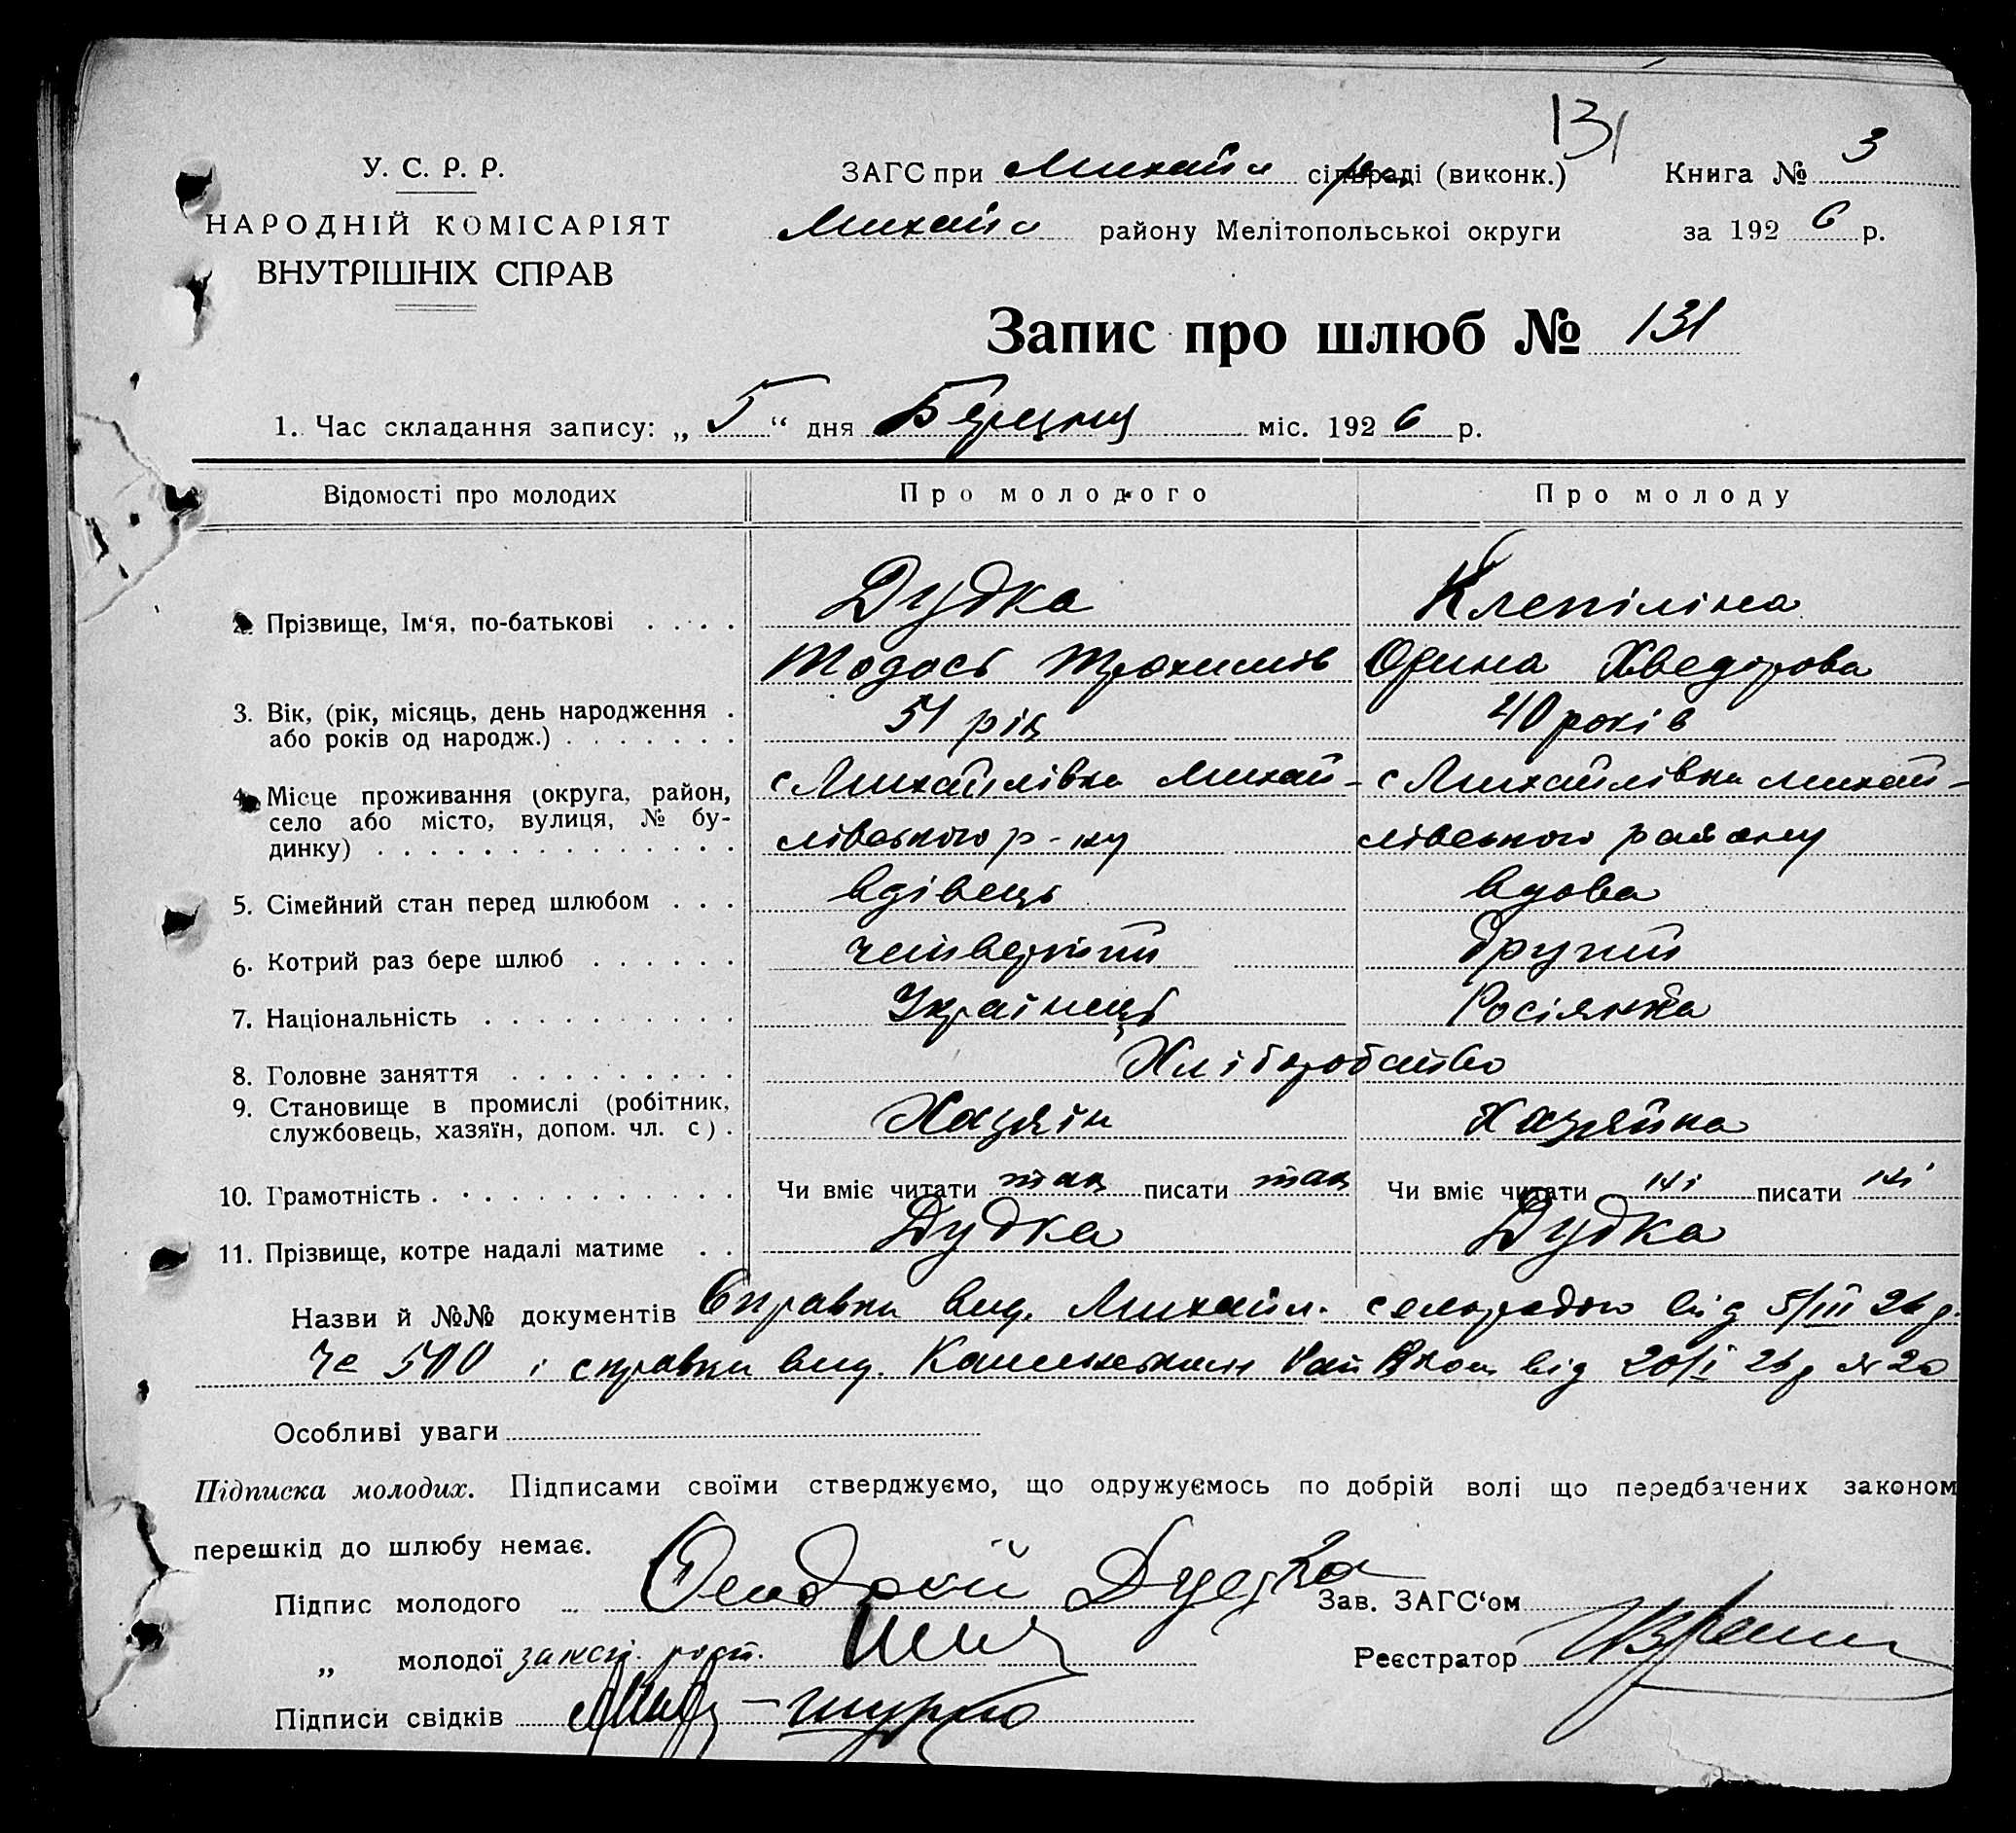 131
У. С. Р. Р.
НАРОДНІЙ КОМІСАРІЯТ
ВНУТРІШНІХ СПРАВ
ЗАГС при Михайл сільраді (виконк.) Книга № 3
Михайл району Мелітопольської округи за 1926 р.
Запис про шлюб № 131
1. Час складання запису: „ 5 “ дня Березня міс. 1926 р.
Відомості про молодих
Про молодого
Про молоду
2. Прізвище, Ім'я, по-батькові . . . .
Дудка
Тодось Трохимів
Клепіліна
Орина Хведірова
3. Вік, (рік, місяць, день народження .
або років од народж.) . . . . . . .
51 рік
40 років
4. Місце проживання (округа, район,
село або місто, вулиця, № бу-
динку) . . . . . . . . . . . . . .
с Михайлівка Михай-
лівського р-ну
с Михайлівка Михай-
лівського району
5. Сімейний стан перед шлюбом . . .
вдівець
вдова
6. Котрий раз бере шлюб . . . . . .
четвертий
другий
7. Національність . . . . . . . . . .
Українець
Росіянка
8. Головне заняття . . . . . . . . .
Хліборобство
9. Становище в промислі (робітник,
службовець, хазяїн, допом. чл. с) .
Хазяїн
Хазяйка
10. Грамотність . . . . . . . . . . . .
Чи вміє читати так писати так
Чи вміє читати ні писати ні
11. Прізвище, котре надалі матиме . .
Дудка
Дудка
Назви й №№ документів Справки вид. Михайл. сельрадою від 5/III 26 р.
Че 500 і справки вид. Каменським Рай Вком від 20/I 26 р № 20
Особливі уваги
Підписка молодих. Підписами своїми стверджуємо, що одружуємось по добрій волі що передбачених законом
перешкід до шлюбу немає.
Підпис молодого Дудка
Зав. ЗАГС‘ом
„ молодої
Реєстратор
Підписи свідків